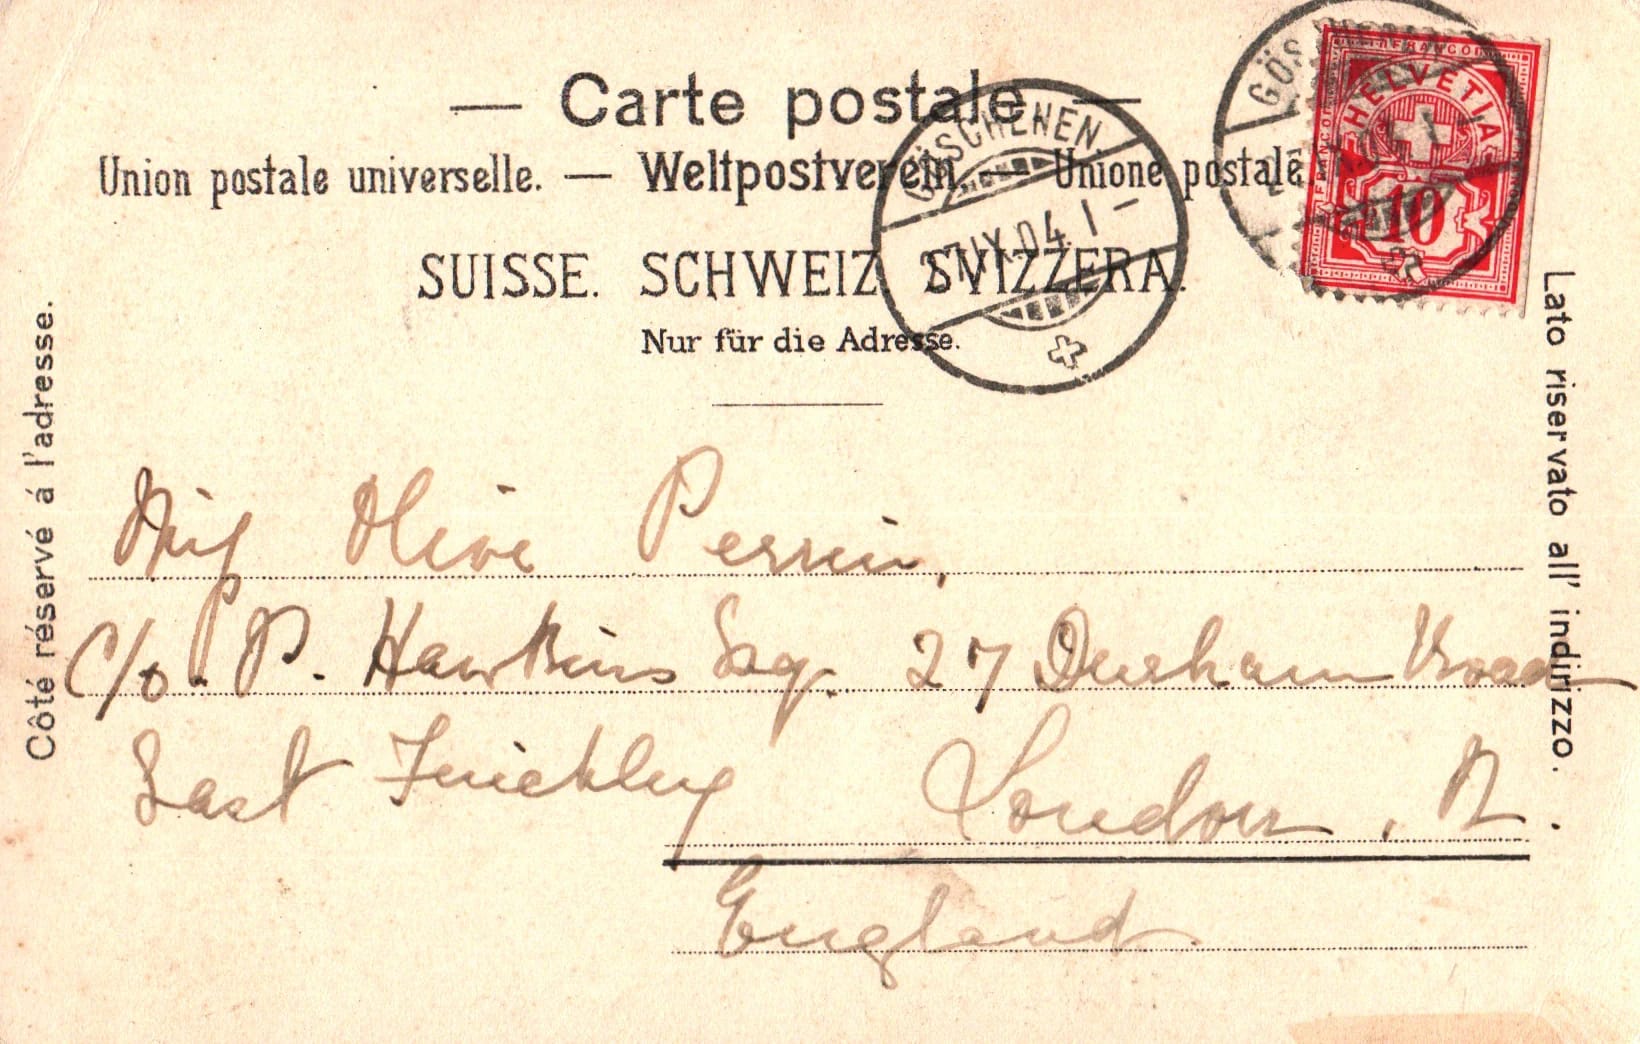 — Carte postale —
Union postale universelle. — Weltpostverein. — Unione postale.
SUISSE. SCHWEIZ. SVIZZERA.
Nur für die Adresse.
Côté réservé á l'adresse.
Lato riservato all' indirizzo.
GÖSCHENEN.
27.IX.04.I-
HELVETIA
FRANCO
10
Miss Olive Perrin,
c/o. P. Hawkins Esq. 27 Durham Road
East Finchley London. N.
England